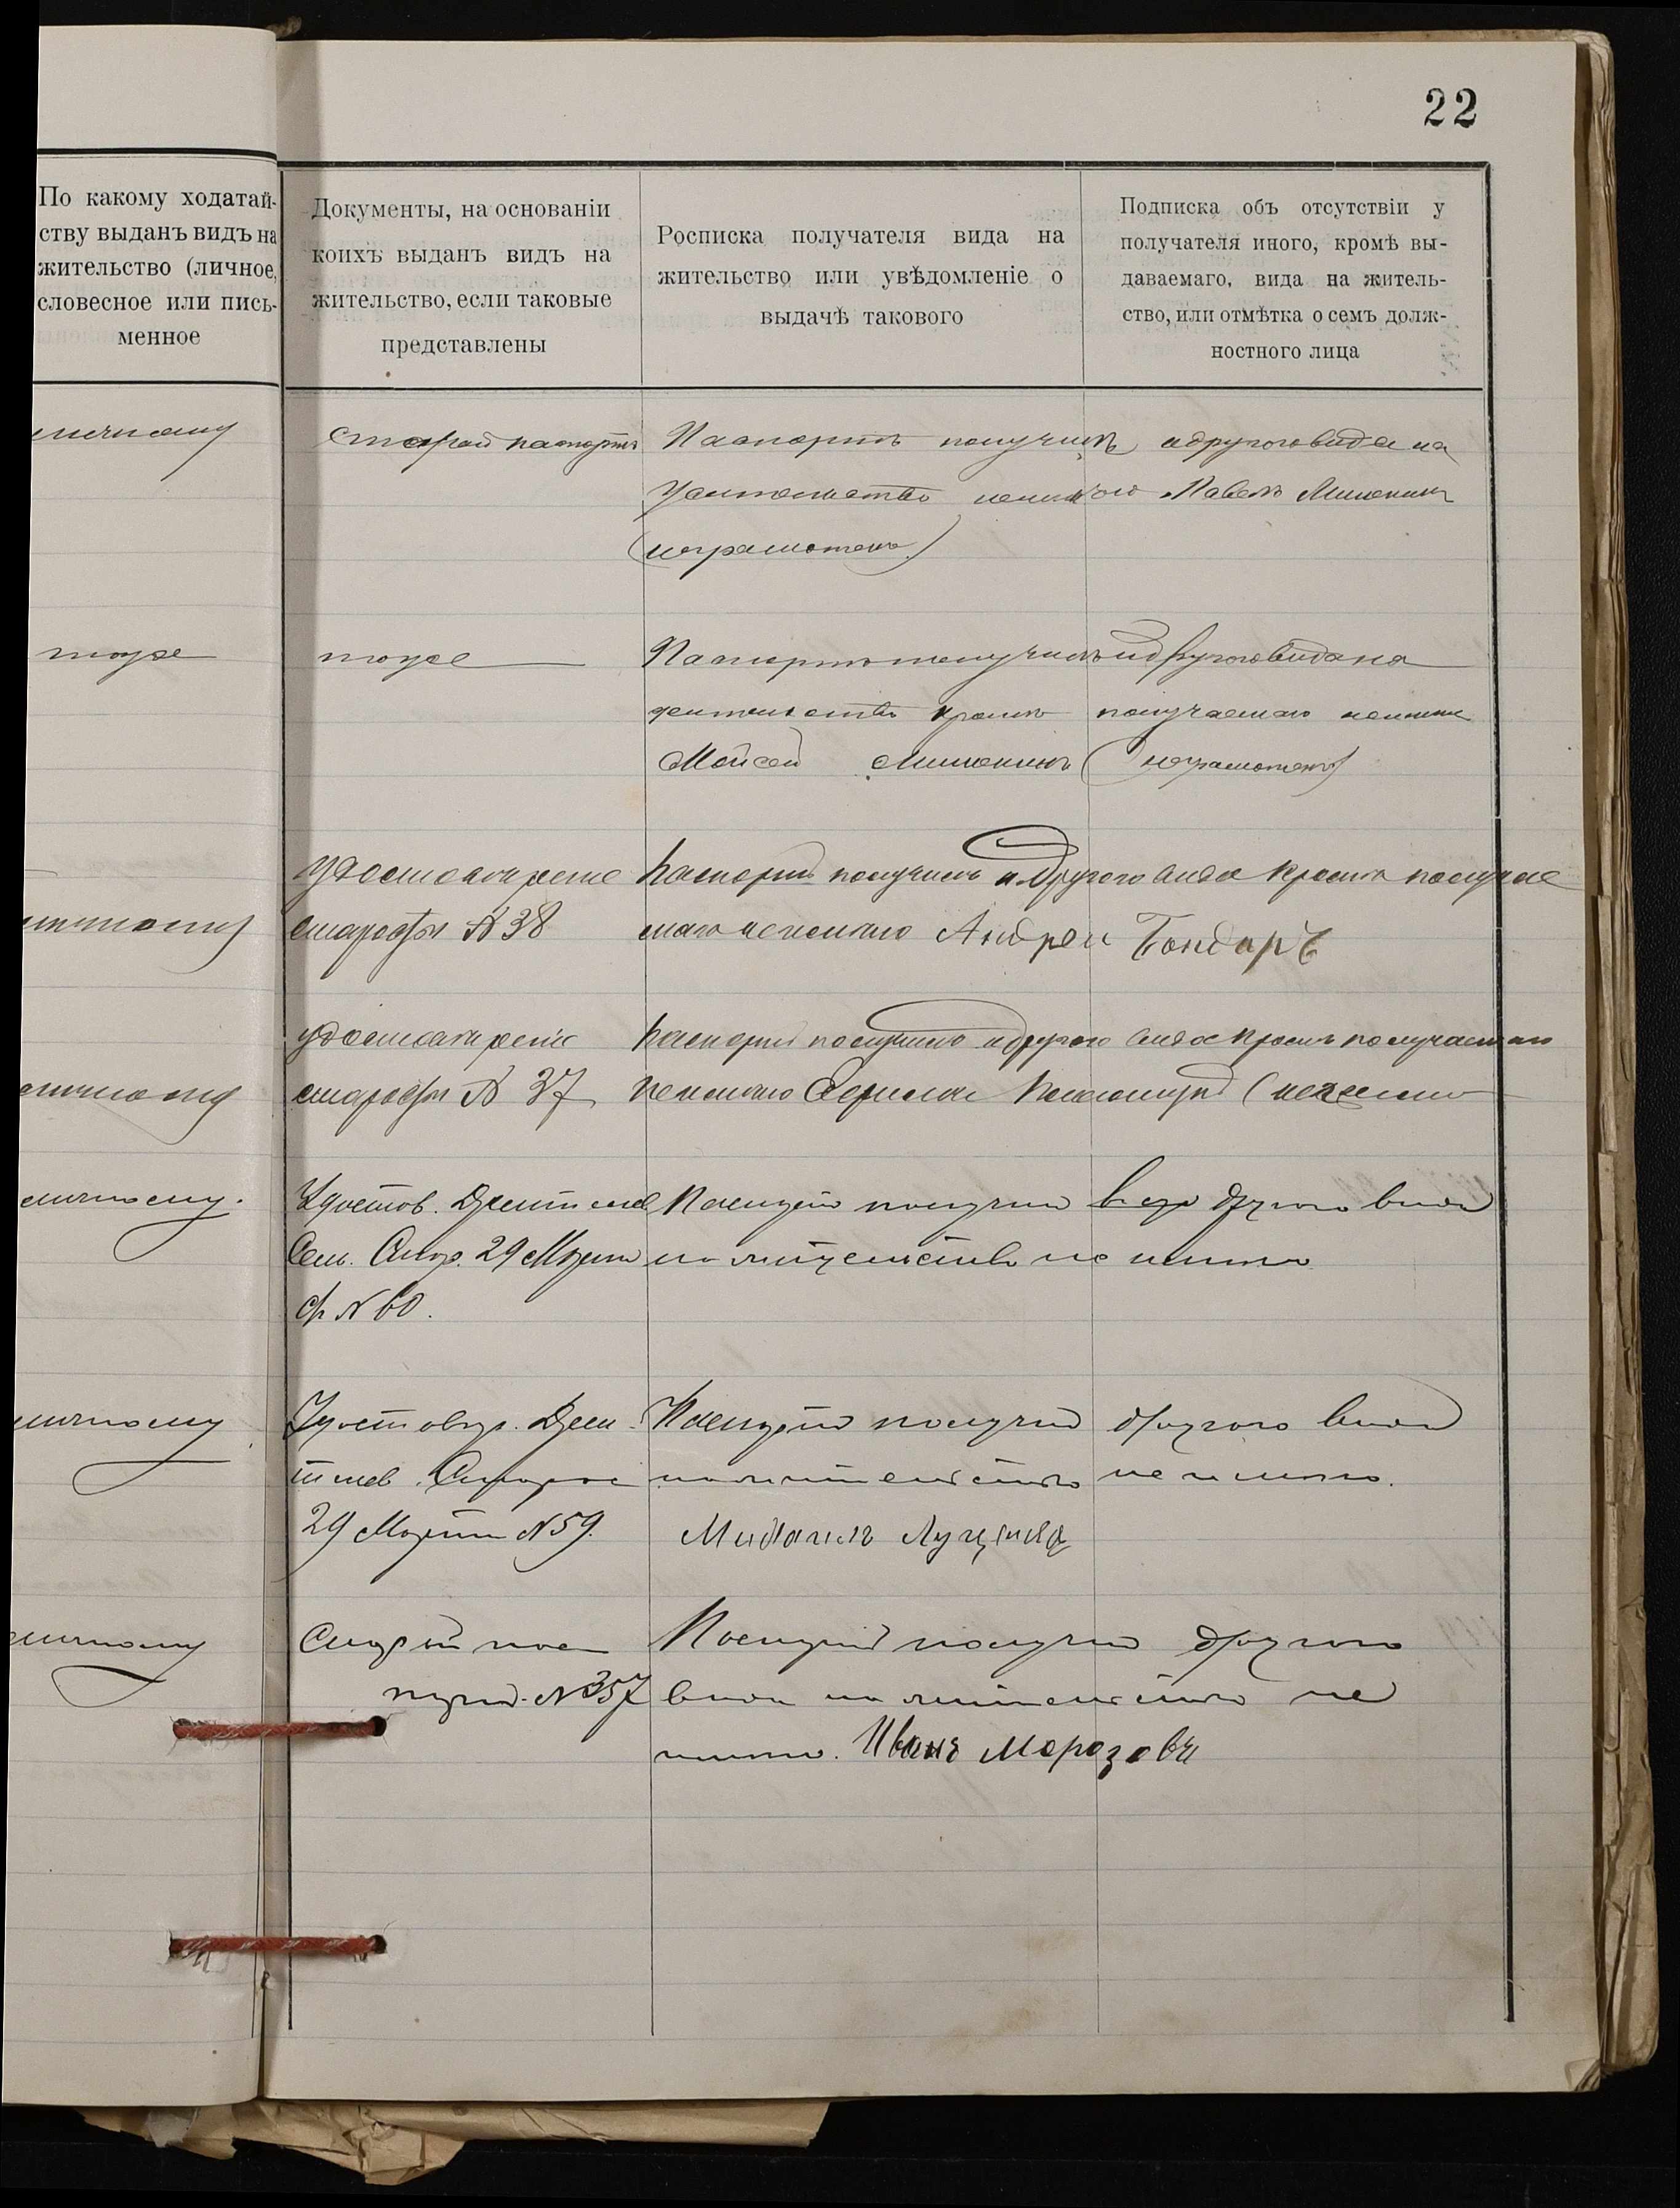 22
По какому ходатай-
ству выданъ видъ на
жительство (личное,
словесное или пись-
менное
Документы, на основаніи
коихъ выданъ видъ на
жительство, если таковые
представлены
Росписка получателя вида на
жительство или увѣдомленіе о
выдачѣ такового
Подписка объ отсутствіи у
получателя иного, кромѣ вы-
даваемаго, вида на житель-
ство, или отмѣтка о семъ долж-
ностного лица
личному
старый паспортъ
Паспортъ получилъ и другого вида на
жительство не имѣю Павелъ
(неграмотенъ)
тоже
тоже
Паспортъ получилъ и другого вида на
жительство кромѣ получаемаго не имѣю
Мойсей (неграмотенъ)
личному
старосты № 38
Паспортъ получилъ и другого вида кромѣ получае
маго не имѣю Андреи Бондарь
личному
старосты № 37
Паспортъ получилъ и другого вида кромѣ получаемаго
не имѣю
личному.
Удостов.
Сел. Стар. 29 Марта
№ 60.
Паспортъ получилъ другого вида
на жительство не имѣю
личному
29 Марта № 59.
Паспортъ получилъ другого вида
на жительство не имѣю.
Михаилъ
личному
Старый пас
портъ. № 357
Паспортъ получилъ другого
вида на жительство не
имѣю. Иванъ Морозовъ